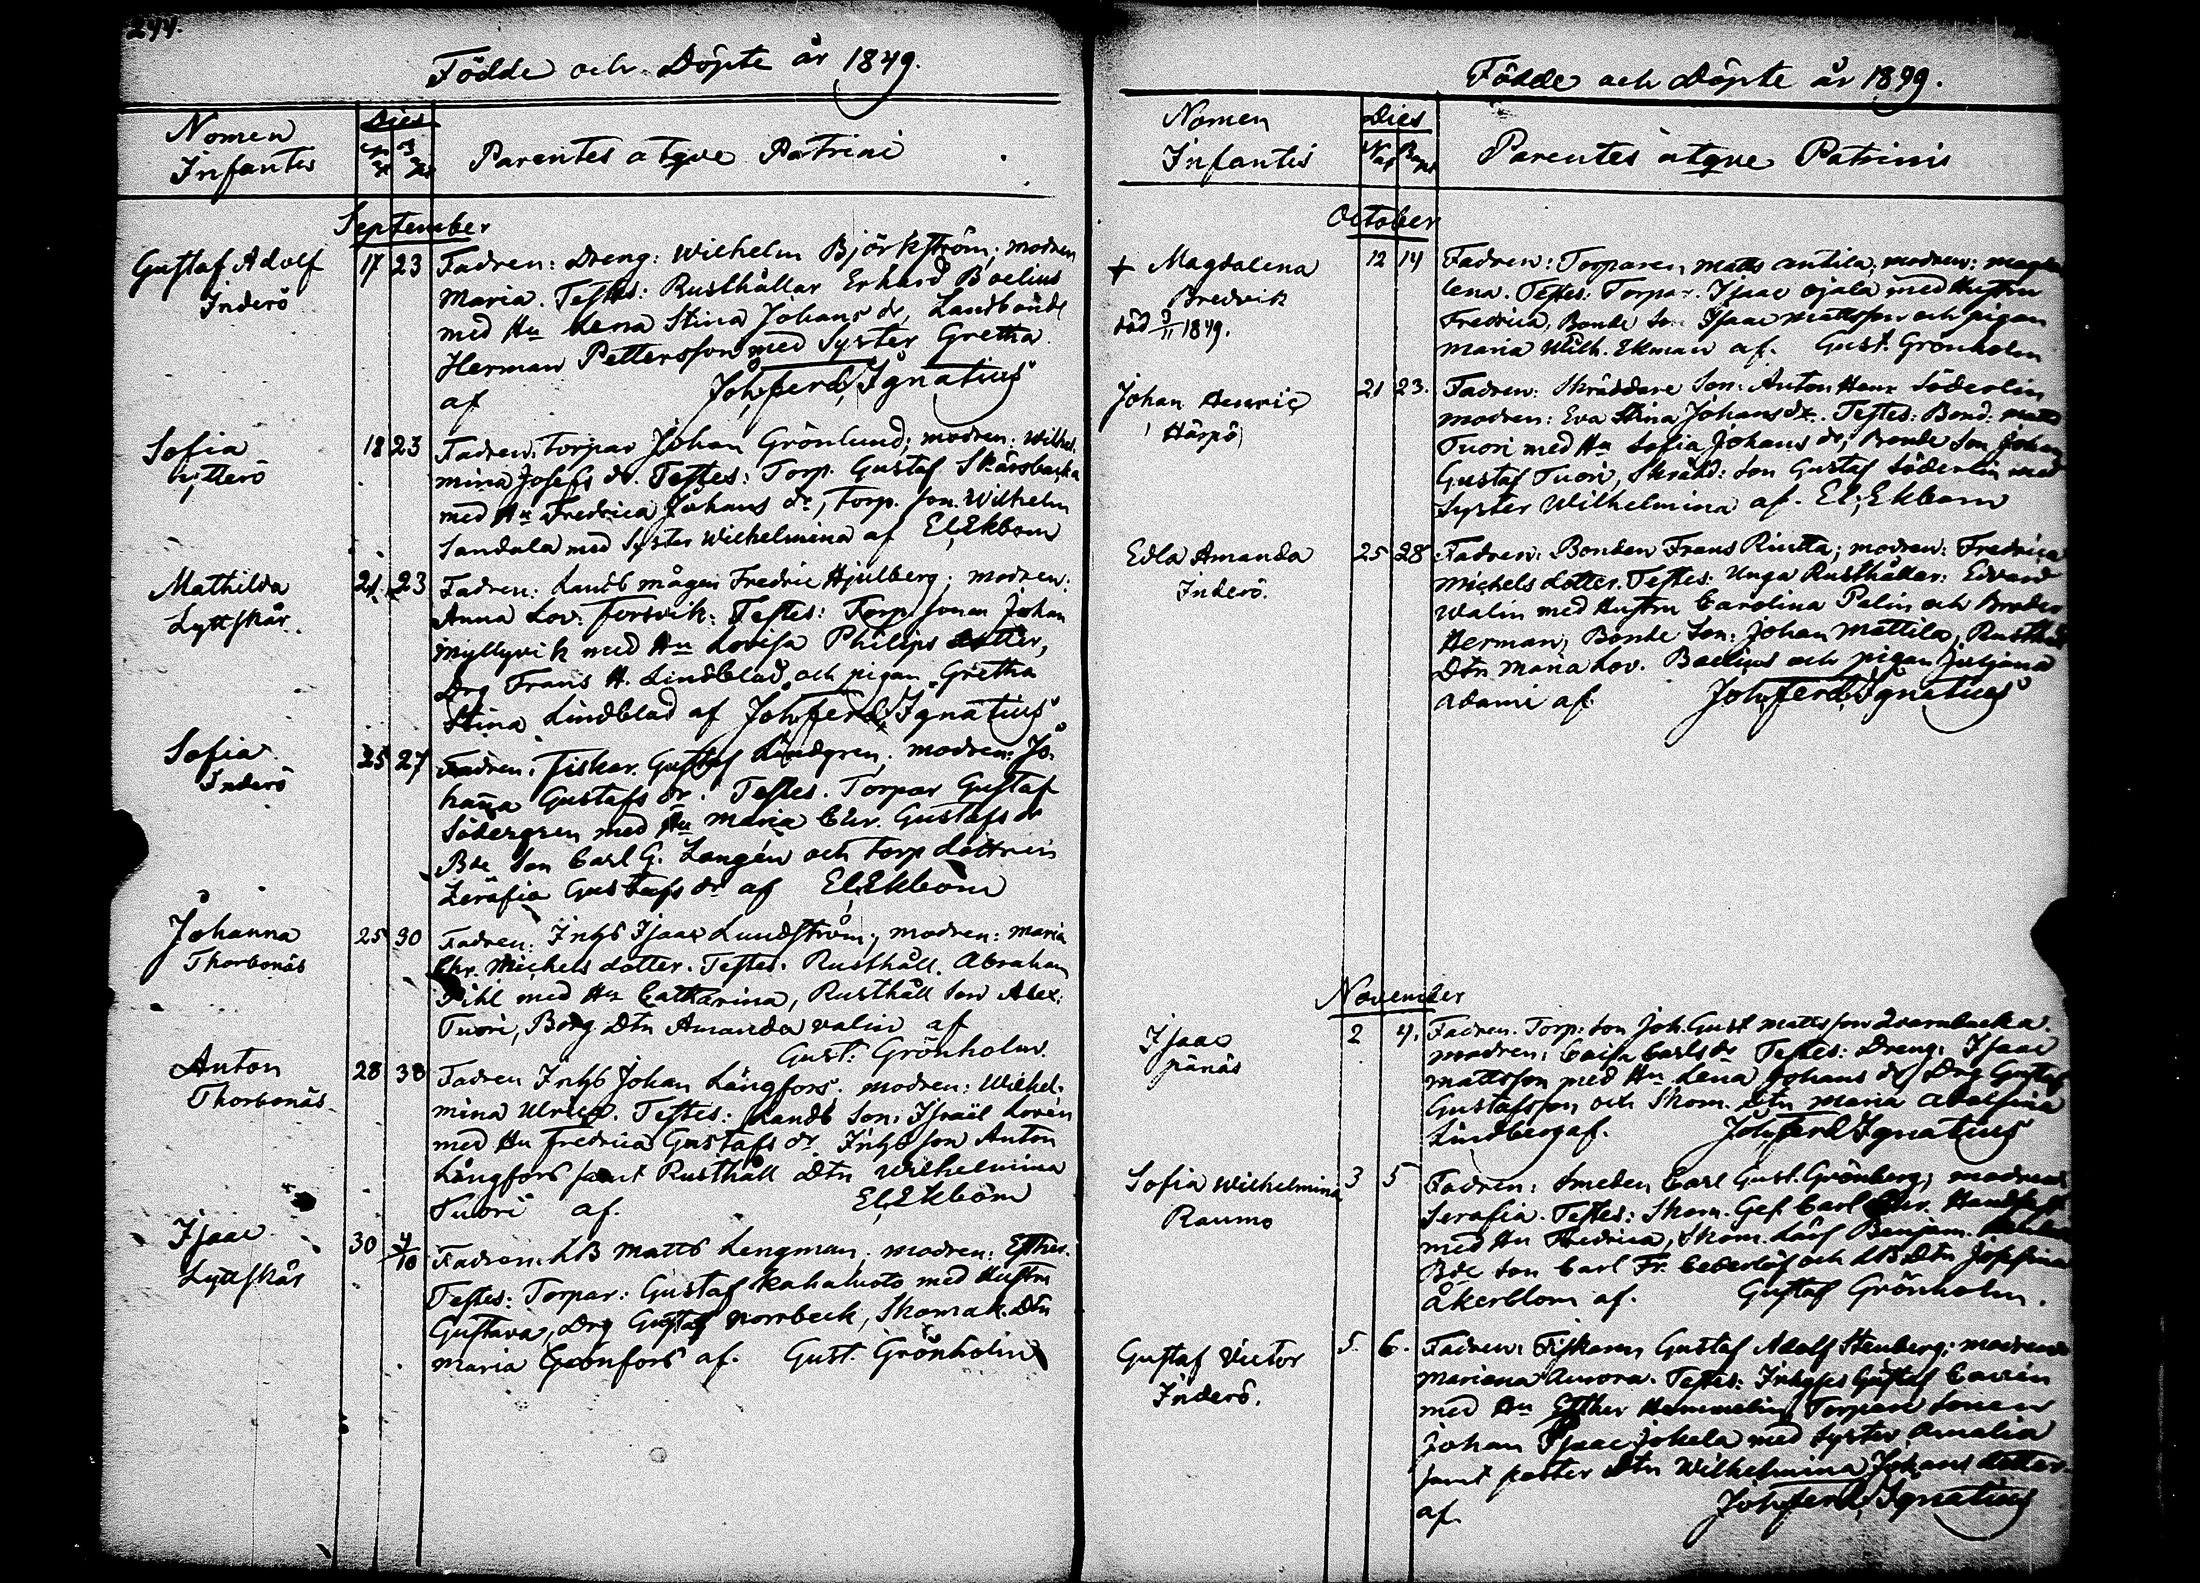 244.
Födde och Döpte år 1849.
Nomen
Infantis
Dies
Parentes atque Patrini
September
Gustaf Adolf
Inderö
17 23
Fadren: Dreng: Wilhelm Björkström; modren
Maria. Testes: Rusthållar Erhard Boelius
med Hu Lena Stina Johans dr, Landbonde
Herman Pettersson med Syster Gretha
af Joh. Ferd. Ignatius
Sofia
Ytterö
18 23
Fadren: Torpar Johan Grönlund; modren: Wilhel-
mina Josefs dr. Testes: Torp. Gustaf Skärsbacka
med Hu Fredrica Johans dr, Torp. son Wilhelm
Sandala med Syster Wilhelmina af El. Ekbom
Mathilda
Lyttskär
21 23
Fadren: Landb mågen Fredric Hjulberg; modren:
Anna Lov. Forsvik. Testes: Torp. sonen Johan
Myllyvik med Hu Lovisa Philips dotter,
Drg Frans H. Lindblad och pigan Gretha
Stina Lindblad af Joh. Ferd. Ignatius
Sofia
Inderö
25 27
Fadren: Fiskar. Gustaf Lindgren; modren: Jo-
hanna Gustafs dr. Testes. Torpar Gustaf
Södergren med Hu Maria Chr. Gustafs dr
Bde Son Carl G. Langén och Torp dottren
Serafia Gustafs dr af El. Ekbom
Johanna
Thorbonäs
25 30
Fadren: Inhs Isaac Lundström; modren: Maria
Chr. Michels dotter. Testes. Rusthåll. Abraham
Pihl med Hu Catharina, Rusthåll Son Alex.
Tuori, Borg Dtn Amanda Valin af
Gust. Grönholm.
Anton
Thorbonäs
28 30
Fadren Inhs Johan Långfors; modren: Wilhel-
mina Ulrica. Testes: Landb Son: Israel Lorén
med Hu Fredrica Gustafs dr Inhs son Anton
Långfors samt Rusthåll Dtn Wilhelmina
Tuori af. El. Ekbom
Isaac
Lyttskär
30 4/10
Fadren: LB Matts Lengman; modren: Esther.
Testes: Torpar: Gustaf Kahaluoto med Hustru
Gustava, Drg Gustaf Norrbeck, Skomak. Dtn
Maria Grönfors af. Gust. Grönholm
Födde och Döpte år 1849.
Nomen
Infantis
Dies
Nat Bapt
Parentes atque Patrinis
October
+ Magdalena
Bredvik
död 9/11 1849.
12 14
Fadren: Torparen Matts Antila; modren: Magda
lena. Testes: Torpar. Isaac Ojala med Hustru
Fredrica, Bonde Son Isaac Mattsson och pigan
Maria Wilh. Ekman af. Gust. Grönholm
Johan Henric
Härpö
21 23.
Fadren: Skräddare Son: Anton Henr Söderlin
modren: Eva Stina Johans dr. Testes: Bond. Matts
Tuori med Hu Sofia Johans dr, Bonde Son Johan
Gustaf Tuori, Skrädd: Son Gustaf Söderlin med
Syster Wilhelmina af. El. Ekbom
Edla Amanda
Inderö.
25 28
Fadren: Bonden Frans Rintta; modren: Fredrica
Michels dotter. Testes: Unga Rusthållar: Edvard
Walin med Hustru Carolina Palin och Broder
Herman, Bonde Son: Johan Mattila, Rusthåll
Dtn Maria Lov. Boelius och pigan Juliana
Adami af. Joh. Ferd. Ignatius
November
Isaac
Spänäs
2 4.
Fadren. Torp: Son Joh. Gust Mattsson Qvarnbacka.
modren: Caisa Carls dr Testes: Dreng. Isaac
Mattsson med Hu Lena Johans dr, Drg Gustaf
Gustafsson och Skom. dtn Maria Adolfina
Lindberg af. Joh. Ferd. Ignatius
Sofia Wilhelmina
Raumo
3 5
Fadren: Smeden Carl Gust. Grönberg; modren
Serafia. Testes: Skom. Ges. Carl Chr.
med Hu Fredrica, Skom. Lärl Benjam.
Bde Son Carl Fr. Cederlöf och LB Dtn Josefina
Åkerblom af. Gustaf Grönholm.
Gustaf Victor
Inderö.
5. 6.
Fadren: Fiskaren Gustaf Adolf Stenberg; modren
Mariana Aurora. Testes: Inhyses Gustaf
med Hu Esther Hemmelin, Torpare Sonen
Johan Isaac Jokela med Syster Amalia
samt dtn Wilhelmina Johans dotter.
af Joh. Ferd. Ignatius